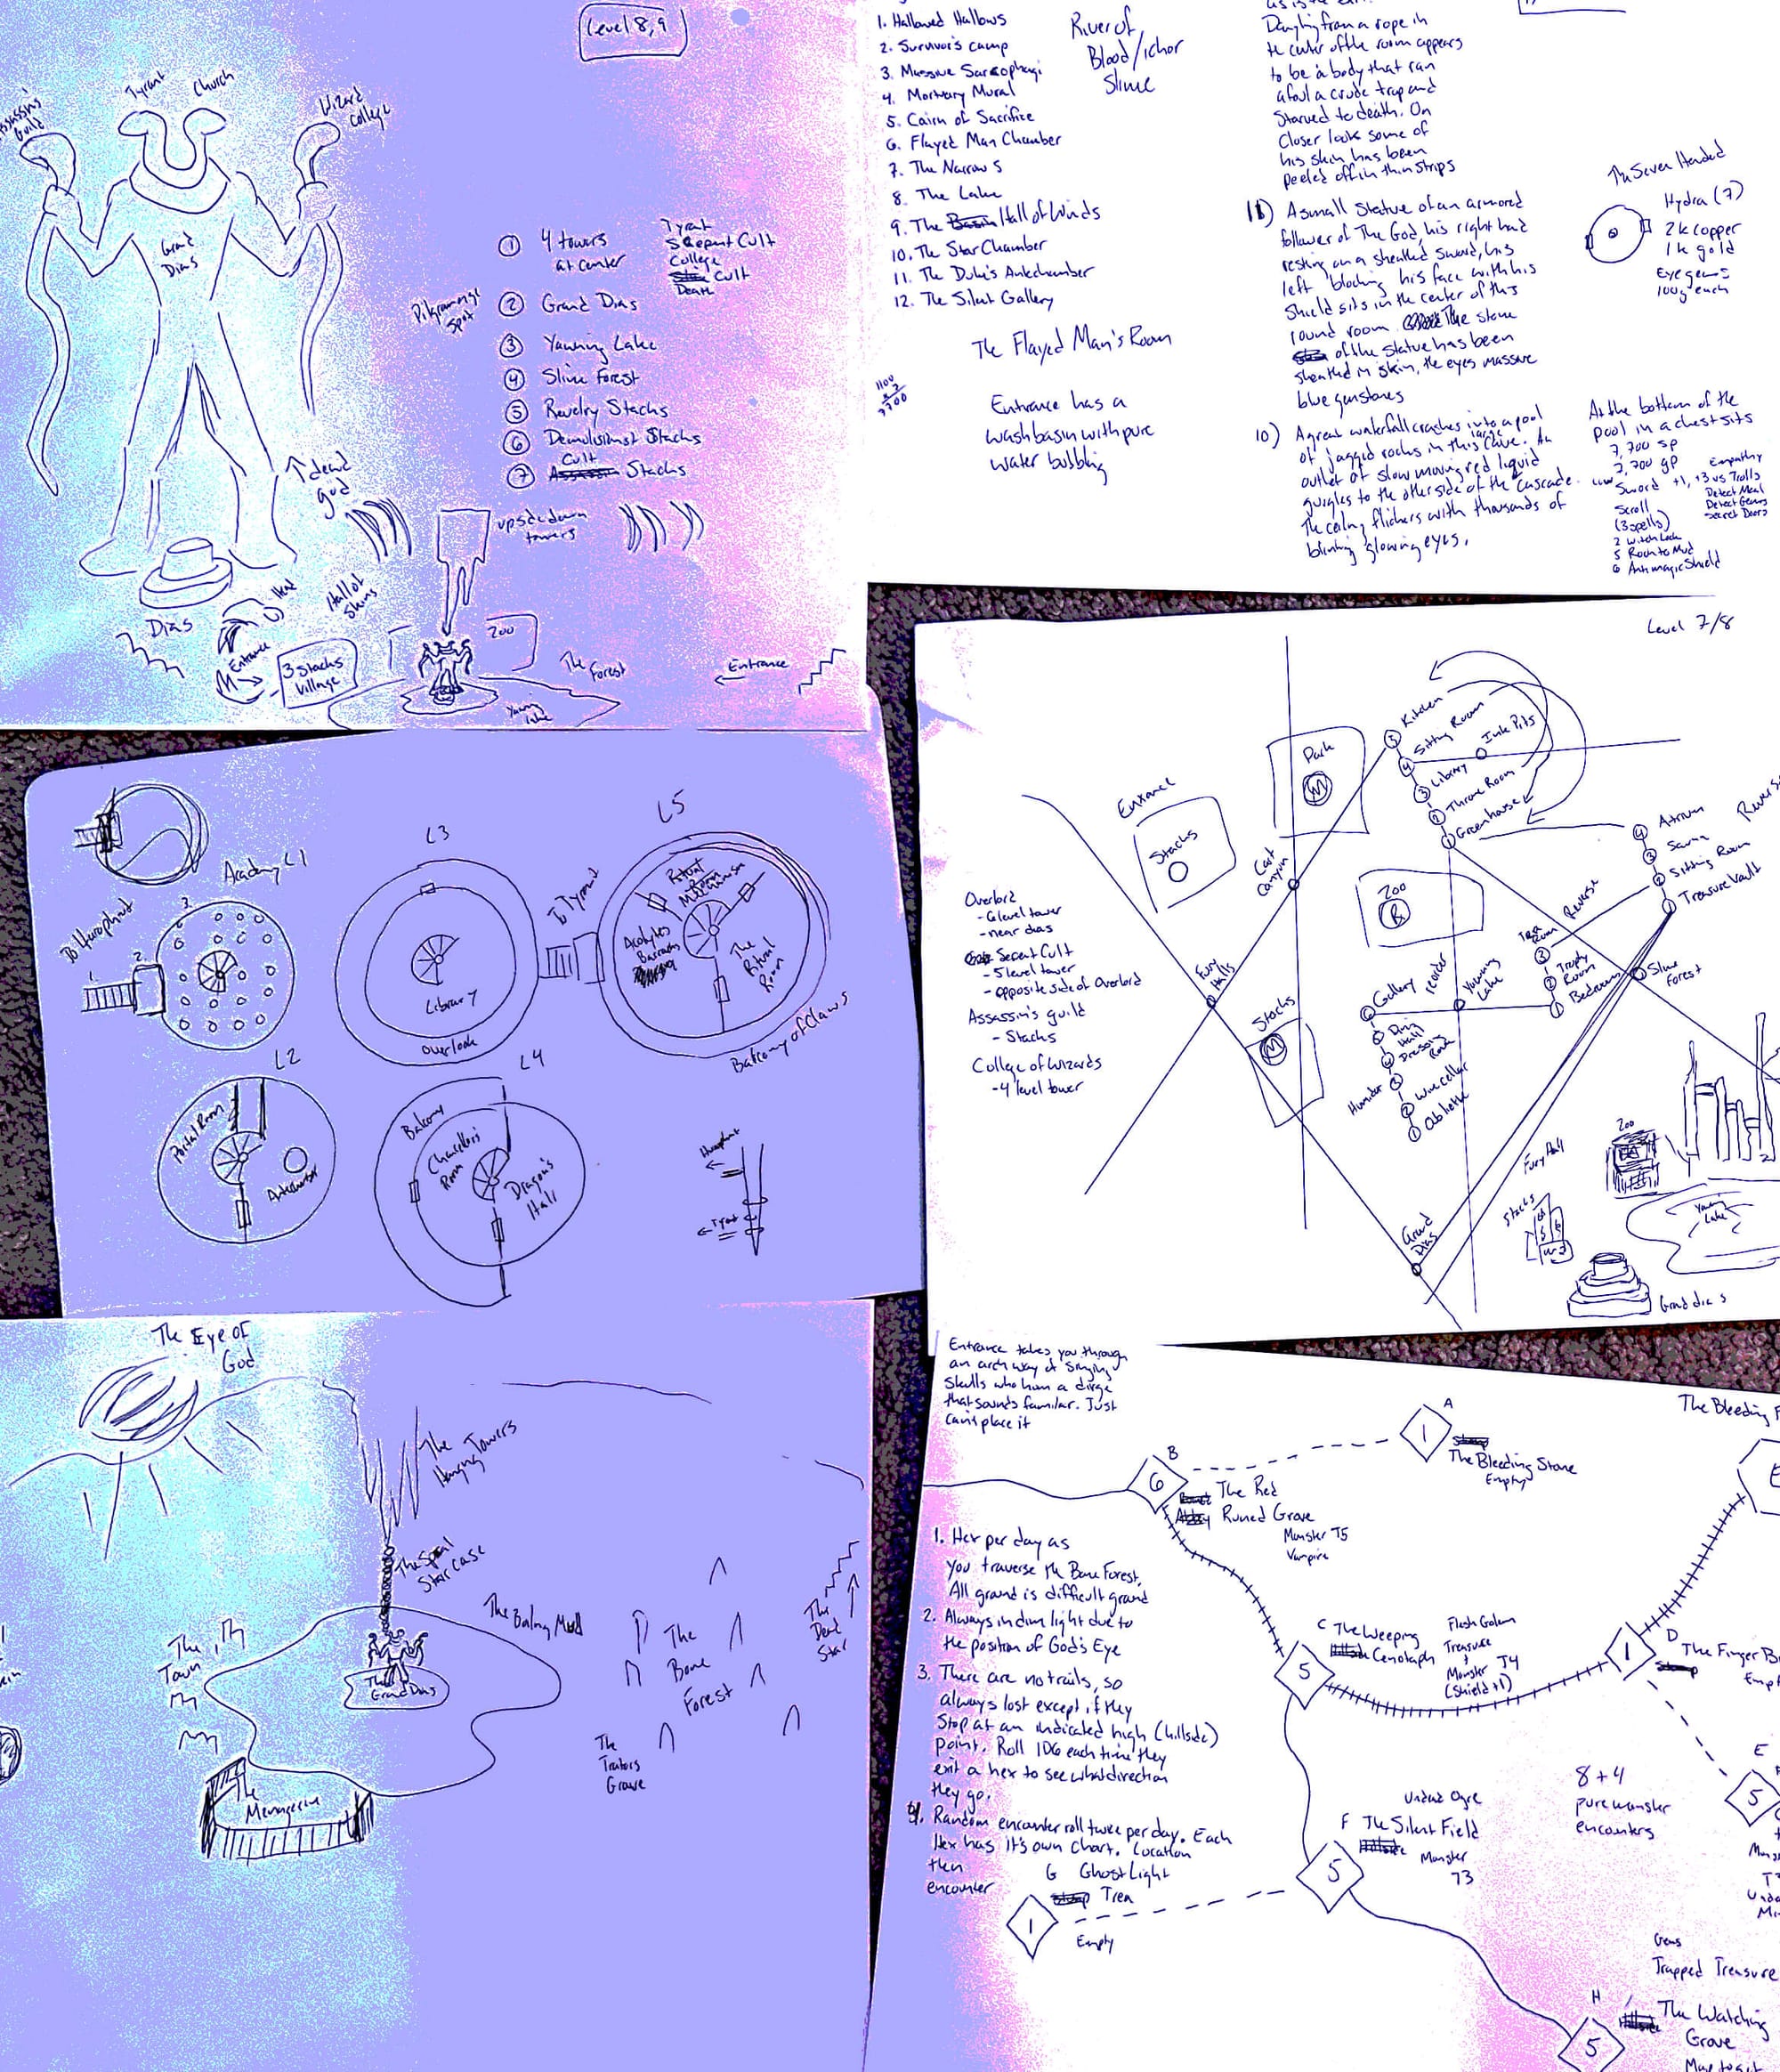 Level 8,9
Tyrant
Church
Assassin's
Guild
Wizard
College
Grand
Dias
① 4 towers
at center
Tyrat
Serpent Cult
College
Cult
Death
Pilgramage
Spot
② Grand Dias
③ Yawning Lake
④ Slime Forest
⑤ Revelry Stacks
⑥ Demolisionist Stacks
⑦ Cult Stacks
↑ dead
god
upside down
towers
Head
Dias
Entrance
M→
3 Stacks
Village
Zoo
The
Forest
Entrance
Yawning
Lake
1. Hallowed Hallows
2. Survivor's camp
3. Massive Sarcophagi
4. Mortuary Mural
5. Cairn of Sacrifice
6. Flayed Man Chamber
7. The Narrows
8. The Lake
9. The Hall of Winds
10. The Star Chamber
11. The Duke's Antechamber
12. The Silent Gallery
River of
Blood/ichor
Slime
The Flayed Man's Room
1100
7700
Entrance has a
wash basin with pure
water bubbling
Dangling from a rope in
the center of the room appears
to be a body that ran
afoul a crude trap and
Starved to death. On
Closer look some of
his skin has been
peeled off in thin strips
11) A small Statue of an armored
follower of The God, his right hand
resting on a sheathed sword, his
left blocking his face with his
Shield sits in the center of this
round room. The stone
of the statue has been
sheathed in skin, the eyes massive
blue gemstones
10) A great waterfall crashes into a pool
of jagged rocks in this large cave. An
outlet of slow moving red liquid
gurgles to the other side of the cascade.
The ceiling flickers with thousands of
blinking glowing eyes.
The Seven Headed
Hydra (7)
2k copper
1k gold
Eye gems
100g each
At the bottom of the
pool in a chest sits
7,700 sp
7,700 gp
Sword +1, +3 vs Trolls
Empathy
Detect Metal
Detect Gems
Secret Doors
Scroll
(3 spells)
2 Witch Lock
5 Rock to Mud
6 Anti magic Shield
Academy L1
To Hierophant
1
2
3
L3
Library
Overlook
To Tyrant
L5
Ritual
Room
Acolytes
Barracks
The
Ritual
Room
Balcony of Claws
L2
Portal Room
Antechamber
L4
Balcony
Chancellors
Room
Dragon's
Hall
Hierophant
Tyrant
Level 7/8
Kitchen
Sitting Room
Ink Pits
Library
Throne Room
Greenhouse
Park
M
Entrance
Stacks
Cart
Canyon
Atrium
Sauna
Sitting Room
Treasure Vault
Reverse
Zoo
R
Tea
Room
Trophy
Room
Bedroom
Slime
Forest
Overlord
- 6 level tower
- near dias
Serpent Cult
- 5 level tower
- opposite side of Overlord
Assassin's guild
- Stacks
College of Wizards
- 4 level tower
Fury
Halls
Stacks
M
Gallery
Yawning
Lake
Dining
Hall
Dressing
Room
Humidor
Wine cellar
Oubliette
Grand
Dias
Zoo
Fury Hall
Stacks
Yawning
Lake
Grand dias
The Eye of
God
The
Hanging Towers
The Spiral
Starcase
The Boiling Mud
The
Town
The
Grand Dias
The
Bone
Forest
The
Dead
Star
The
Traitors
Grave
The
Menagerie
Entrance takes you through
an arch way of Singing
Skulls who hum a dirge
that sounds familiar. Just
can't place it
The Bleeding
A
1
The Bleeding Stone
Empty
B
6
The Red
Runed Grove
Monster T5
Vampire
1. Hex per day as
you traverse the Bone Forest,
All ground is difficult ground
2. Always in dim light due to
the position of God's Eye
3. There are no trails, so
always lost except if they
Stop at an indicated high (hillside)
point. Roll 1D6 each time they
exit a hex to see what direction
they go.
4. Random encounter roll twice per day. Each
Hex has it's own chart. Location
then
encounter
C The Weeping
Cenotaph
5
Flesh Golem
Treasure
+
Monster T4
(Shield +1)
D
1
The Finger
E
5
8 + 4
pure monster
encounters
Undead Ogre
F The Silent Field
Monster
T3
5
G Ghost Light
Tren
1
Empty
Gems
Trapped Treasure
H
5
The Watching
Grove